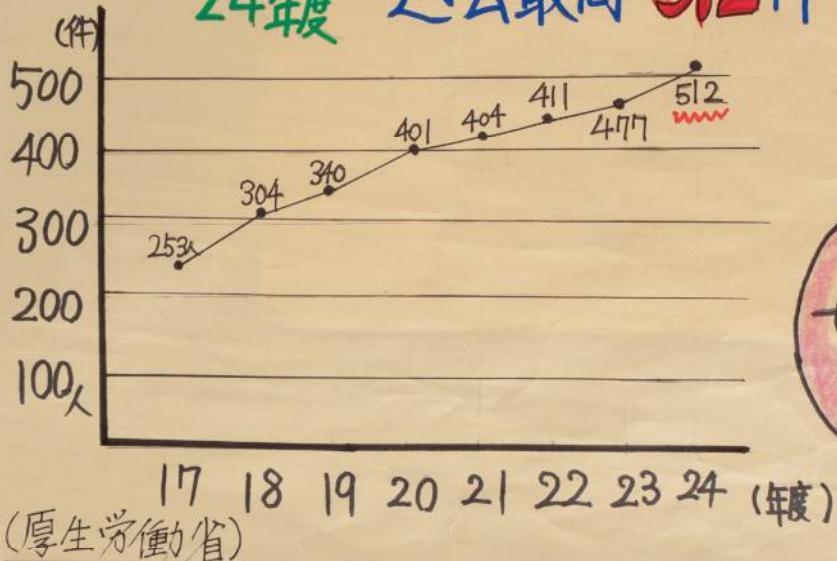 24年度 過去最高 512件
(件)
500
400
300
200
100人
253人
304
340
401
404
411
477
512
17 18 19 20 21 22 23 24 (年度)
(厚生労働省)